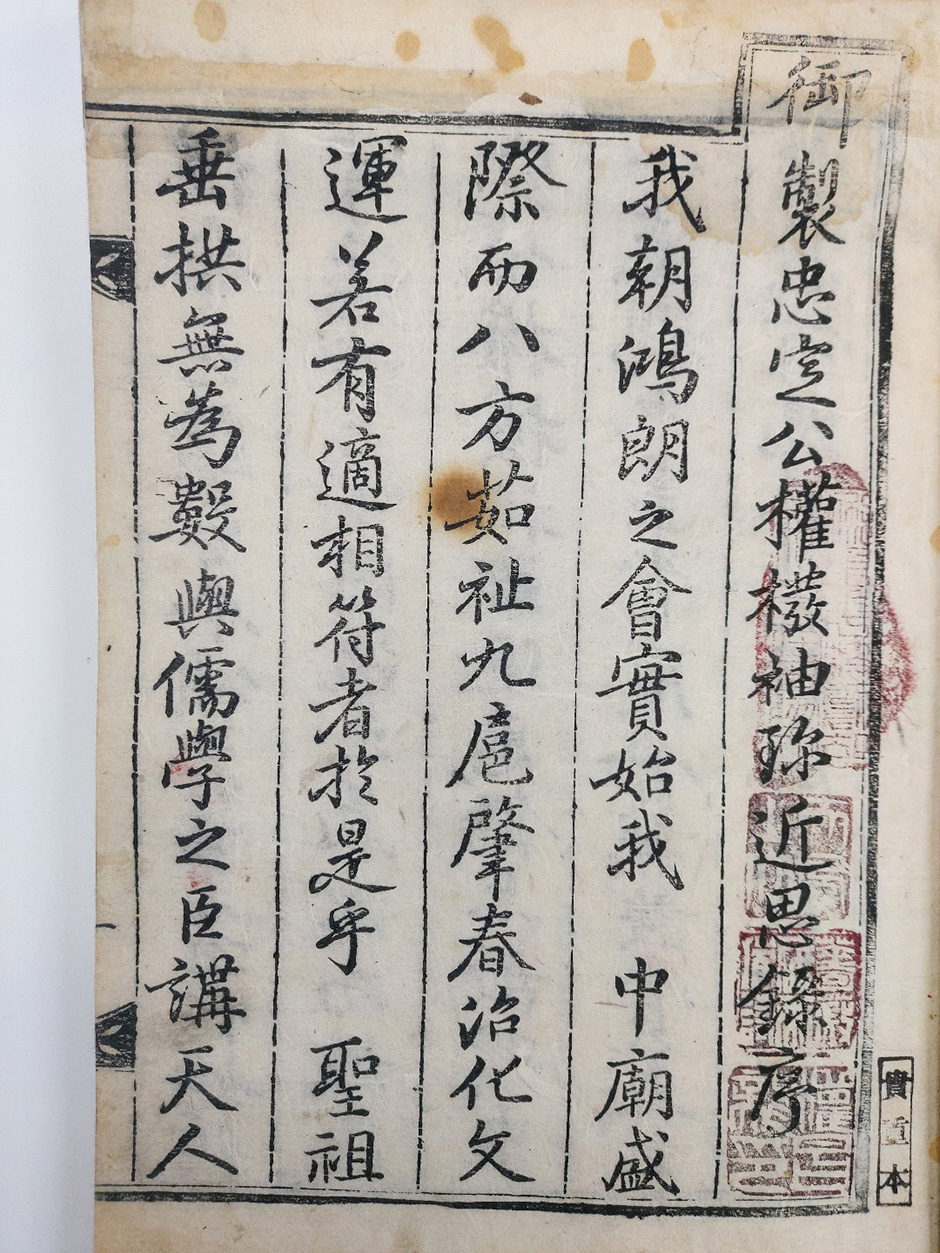 御製忠定公權橃袖珍近思錄序
我朝鴻朗之會實始我 中廟盛
際而八方茹祉九扈肇春治化文
運若有適相符者於是乎 聖祖
垂拱無為數與儒學之臣講天人
貴重本